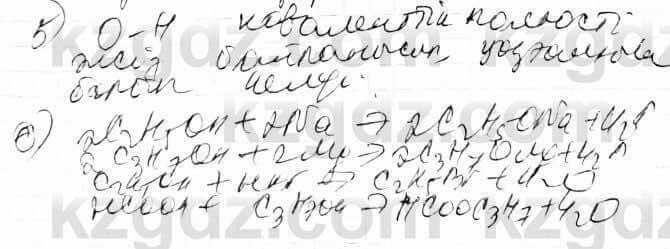 5) O-H коваленттік полюсті
әлсіз байланысып
барып келді.
6) 2C2H5OH + 2Na → 2C2H5ONa + H2↑
2C3H7OH + 2Na → 2C3H7ONa + H2↑
C2H5OH + HBr → C2H5Br + H2O
HCOOH + C3H7OH → HCOOC3H7 + H2O